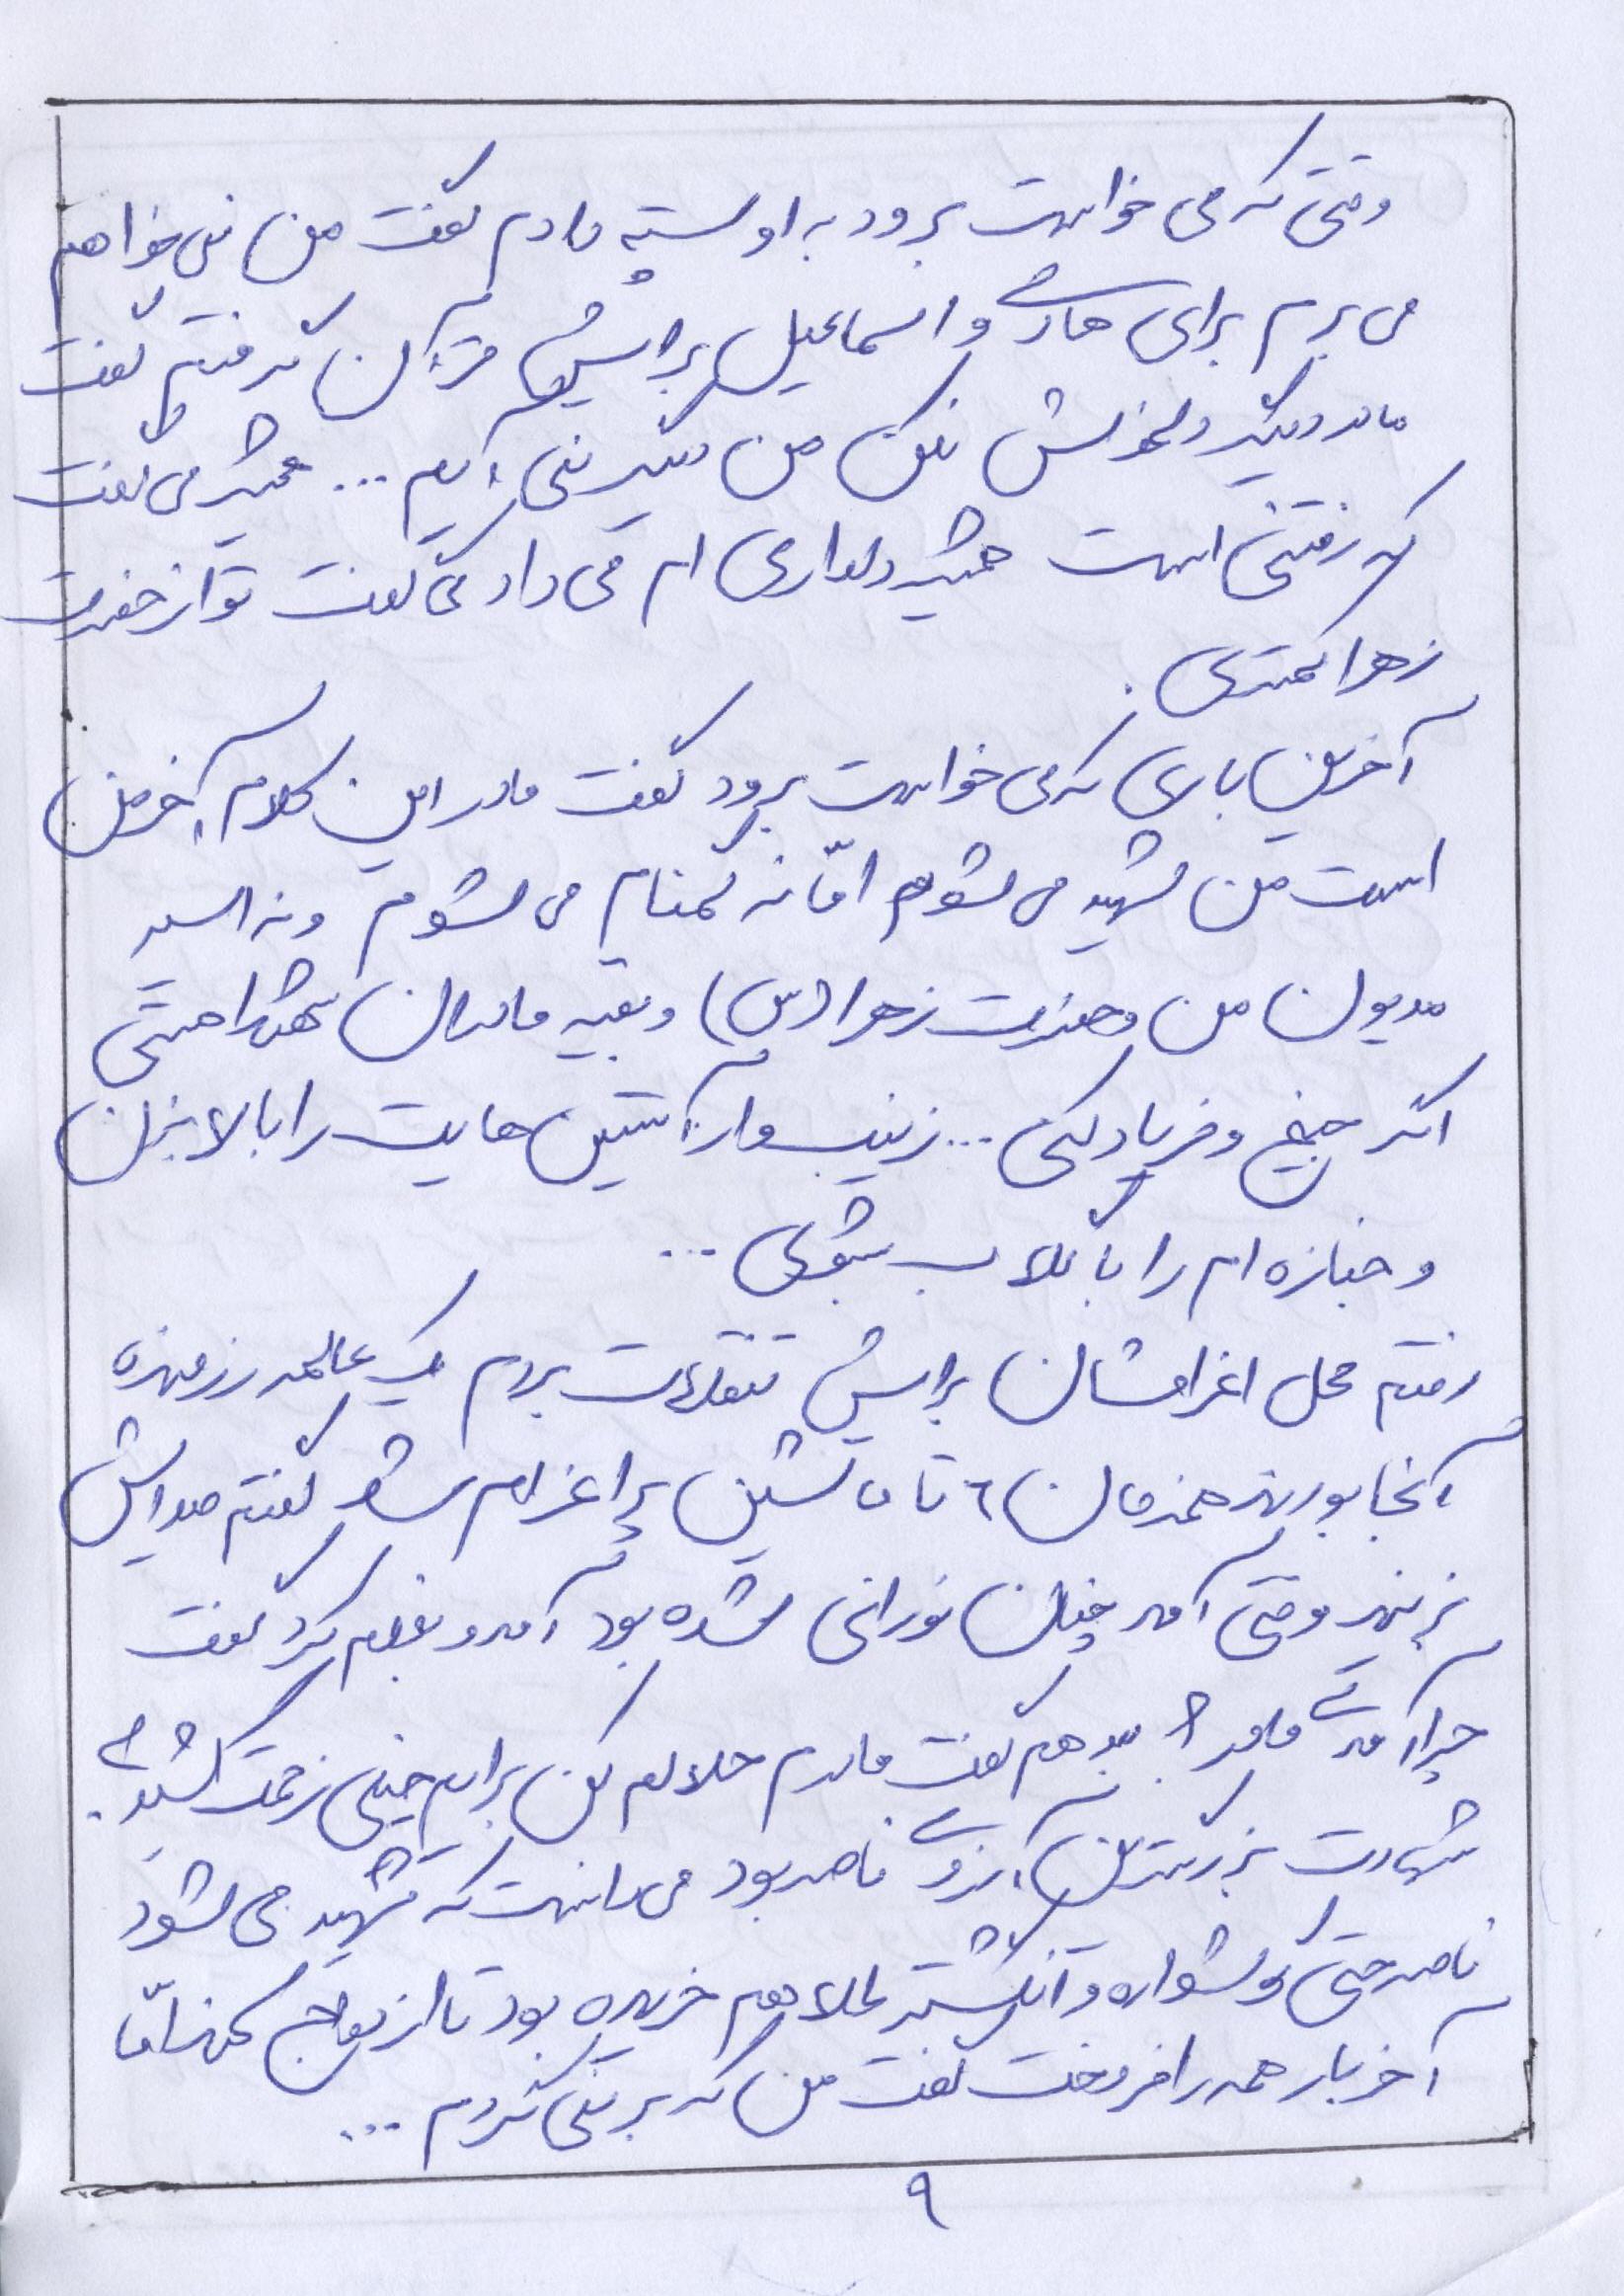 وقتی که می خواست برود به او پسته دادم گفت من نمی خواهم
می برم برای هادی و اسماعیل برایش قرآن گرفتم گفت
مادر دیگر دلخوش نکن من دیگر نمی آیم ... همیشه می گفت
که رفتنی است همیشه دلداری ام می داد می گفت تو از حضرت
زهرا کمتری .
آخرین باری که می خواست برود گفت مادر این کلام آخر من
است من شهید می شوم امّا نه گمنام می شوم و نه اسیر
مدیون من و حضرت زهرا (س) و بقیه مادران شهدا هستی
اگر جیغ و فریاد کنی ... زینب وار آستین هایت را بالا بزن
و جنازه ام را با گلاب بشوی ...
رفتم محل اعزامشان برایش تنقلات بردم یک عالمه رزمنده
آنجا بودند همزمان ۶ تا ماشین پر اعزام شد گفتم صدایش
بزنید وقتی آمد چنان نورانی شده بود آمد و بغلم کرد گفت
چرا آمدی مادر؟ بعد هم گفت مادرم حلالم کن برایم خیلی زحمت کشیدی .
شهادت بزرگترین آرزوی ناصر بود می دانست که شهید می شود
ناصر حتی گوشواره و انگشتر طلا هم خریده بود تا ازدواج کند امّا
آخر بار همه را فروخت گفت من که بر نمی گردم ...
۹